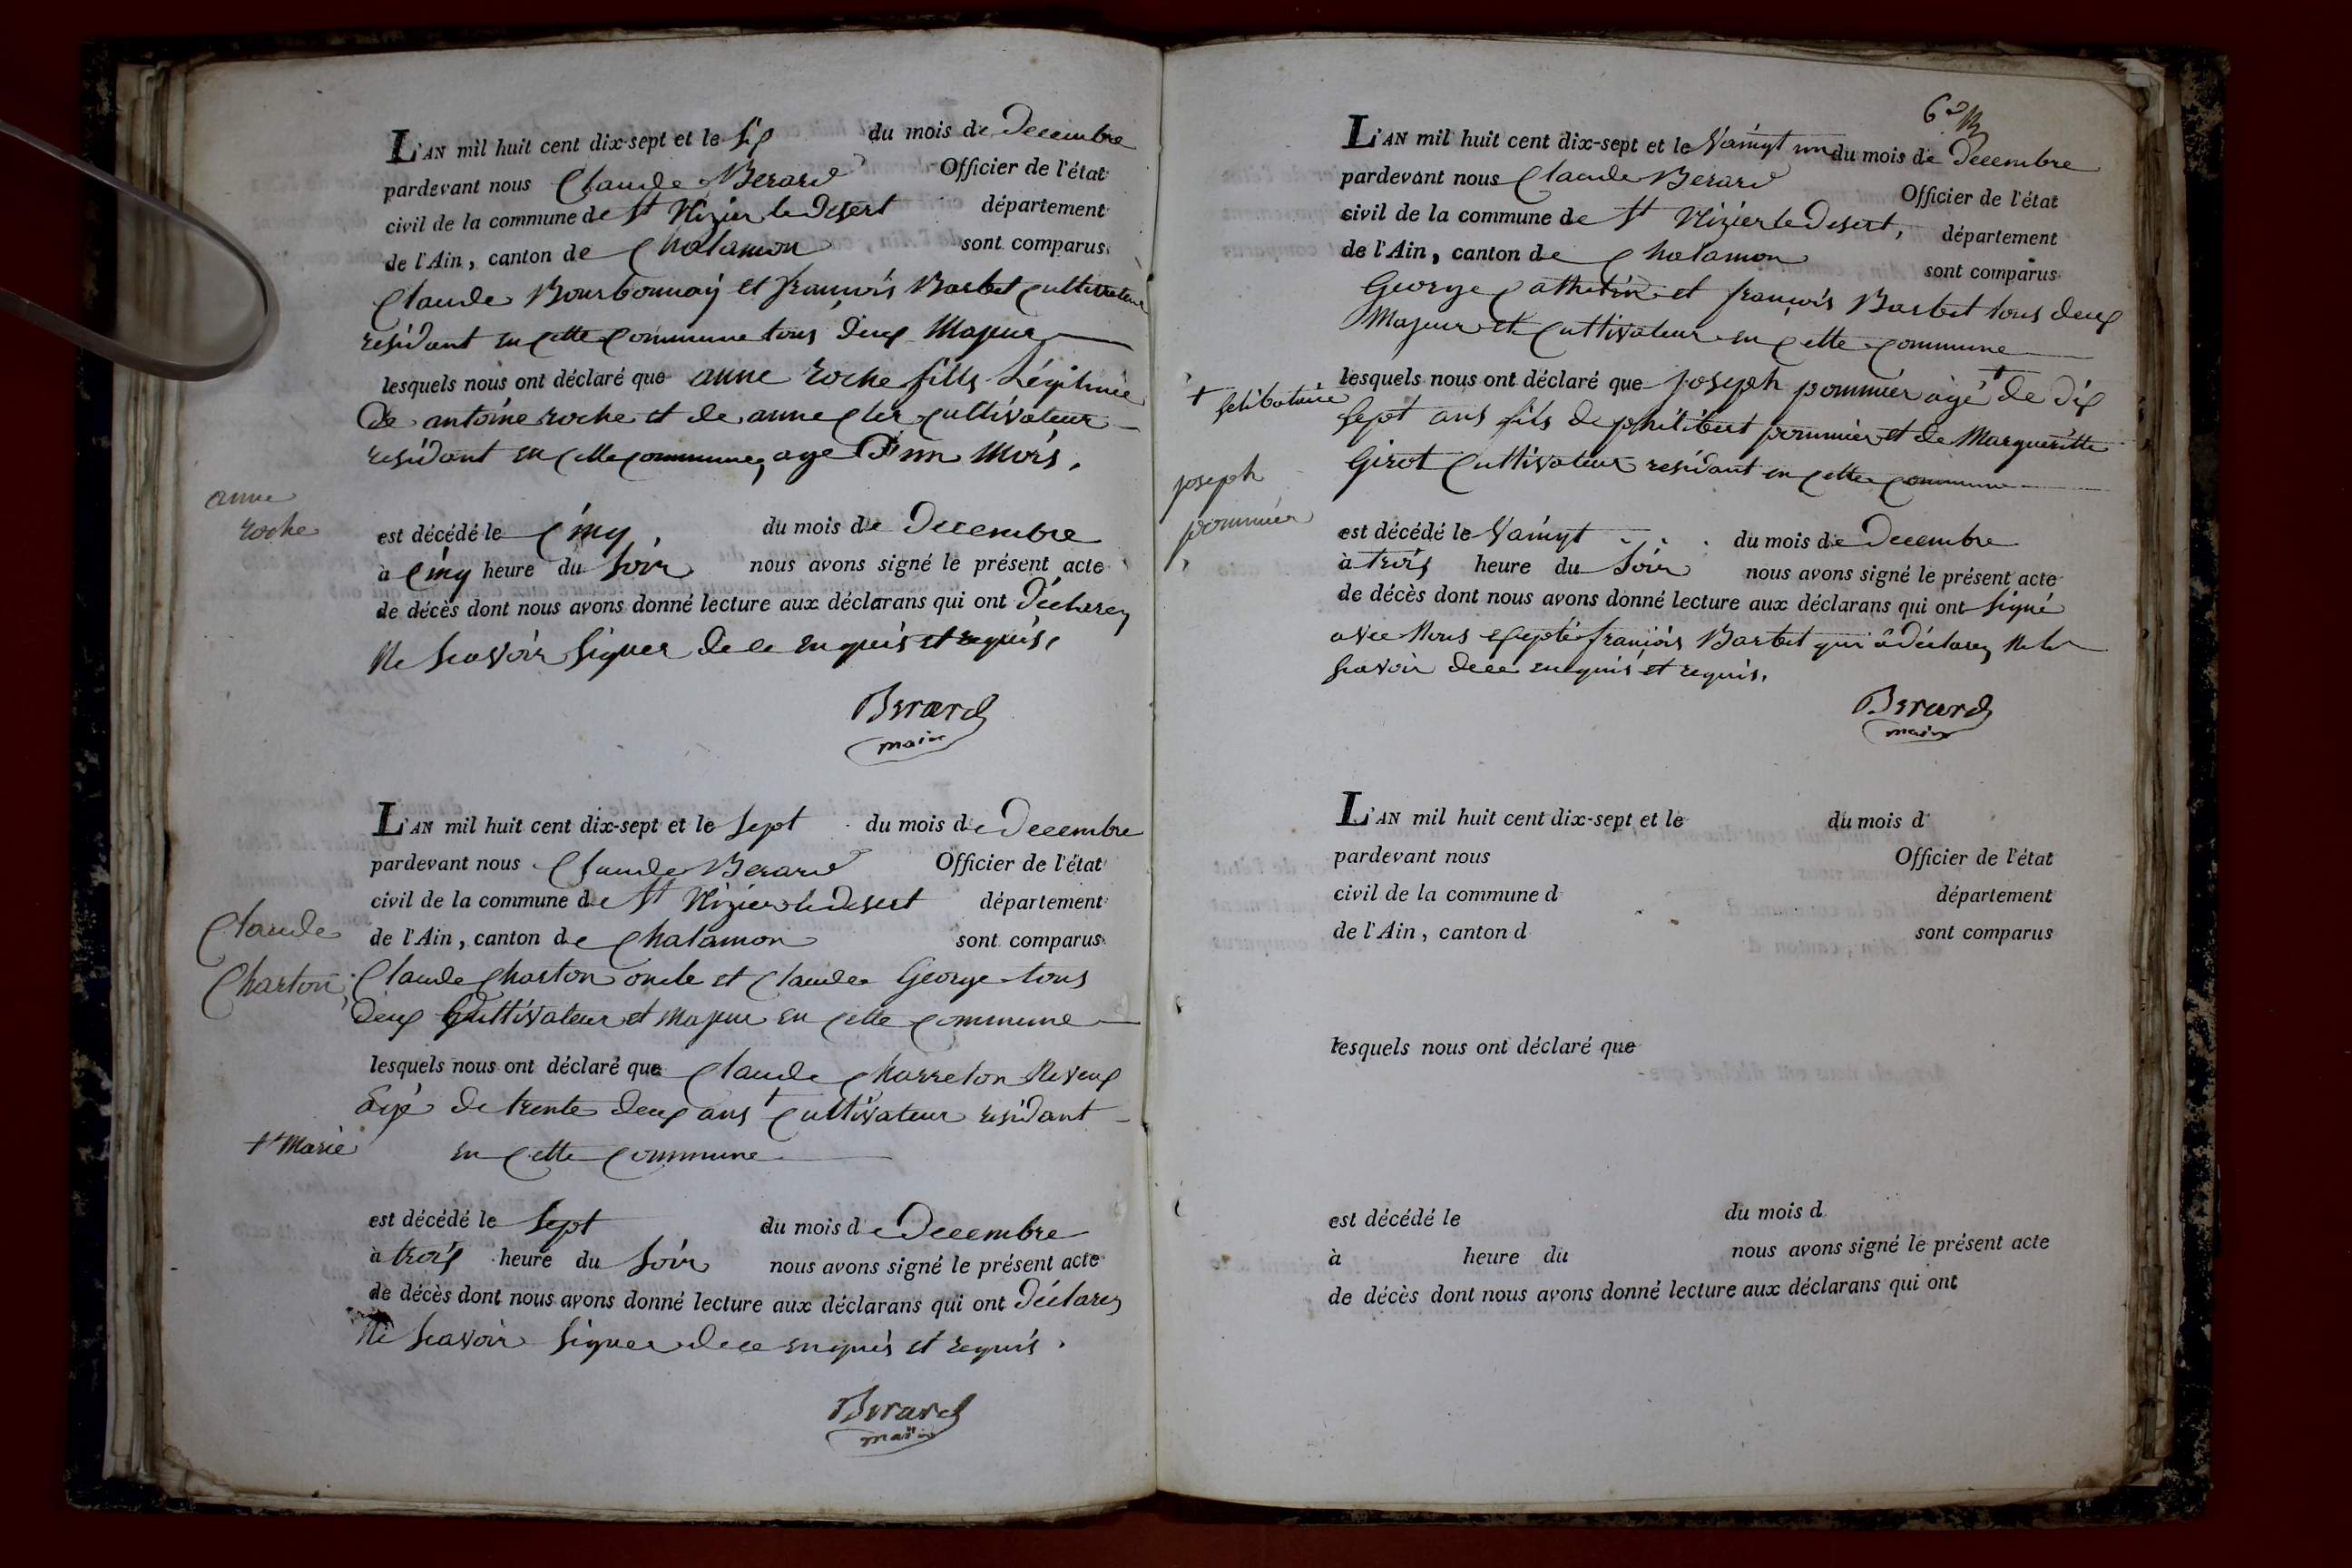 L'AN mil huit cent dix-sept et le six du mois de Decembre
pardevant nous Claude Berard Officier de l'état
civil de la commune de St Nizier le Desert département
de l'Ain, canton de Chalamon sont comparus
Claude Bourbonnay et françois Barbet Cultivateur
residant en cette Commune tous deux Majeur
lesquels nous ont déclaré que anne roche fille Légitimée
De antoine roche et de anne Cler cultivateur
residant en cette commune, age D'un Mois,
anne
roche
est décédé le Cinq du mois de Decembre
à Cinq heure du Soir nous avons signé le présent acte
de décès dont nous avons donné lecture aux déclarans qui ont Declarez
Ne Scavoir Signer de ce enquis et requis,
Berard
maire
L'AN mil huit cent dix-sept et le Sept du mois de Decembre
pardevant nous Claude Berard Officier de l'état
civil de la commune de St Nizier le desert département
de l'Ain, canton de Chalamon sont comparus
Claude
Charton
Claude Charton oncle et Claude George tous
Deux Cultivateur et majeur en Cette Commune
lesquels nous ont déclaré que Claude Charreton Neveux
âgé de trente deux ans + Cultivateur residant
+ Marié
en Cette Commune
est décédé le Sept du mois de Decembre
à trois heure du Soir nous avons signé le présent acte
de décès dont nous avons donné lecture aux déclarans qui ont Déclarez
Ne Scavoir Signer de ce enquis et requis.
Berard
maire
L'AN mil huit cent dix-sept et le Vaingt un du mois de Decembre
pardevant nous Claude Berard Officier de l'état
civil de la commune de St Nizier le Desert, département
de l'Ain, canton de Chalamon sont comparus
George Cathetin et françois Barbet tous deux
Majeur et Cultivateur en Cette Commune
lesquels nous ont déclaré que joseph pommier âgé + de dix
+ Selibataire
Sept ans fils de philibert pommier et de Margueritte
Girot Cultivateur residant en Cette Commune
joseph
pommier
est décédé le Vaingt du mois de Decembre
à trois heure du Soir nous avons signé le présent acte
de décès dont nous avons donné lecture aux déclarans qui ont Signé
avec Nous excepté françois Barbet qui â déclarez Ne le
Scavoir de ce enquis et requis.
Berard
maire
L'AN mil huit cent dix-sept et le du mois d
pardevant nous Officier de l'état
civil de la commune d département
de l'Ain, canton d sont comparus
lesquels nous ont déclaré que
est décédé le du mois d
à heure du nous avons signé le présent acte
de décès dont nous avons donné lecture aux déclarans qui ont